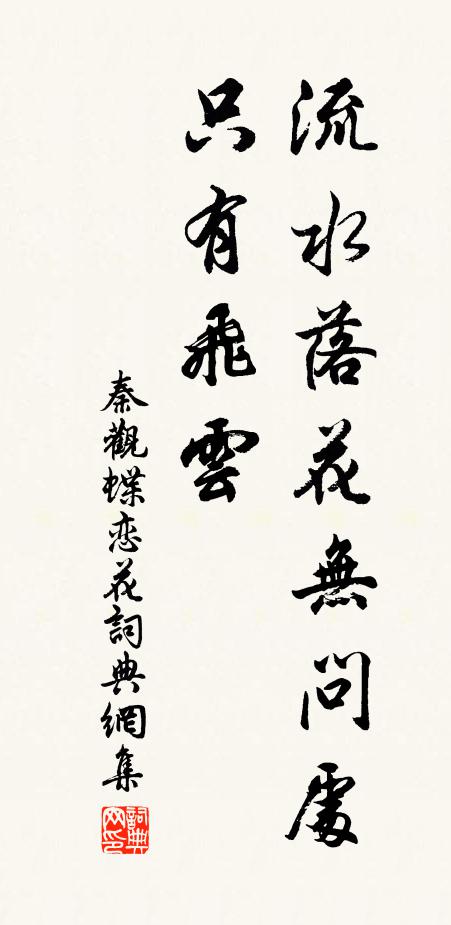 流水落花無問處
只有飛雲
秦觀蝶恋花詞典網集
詞典网印